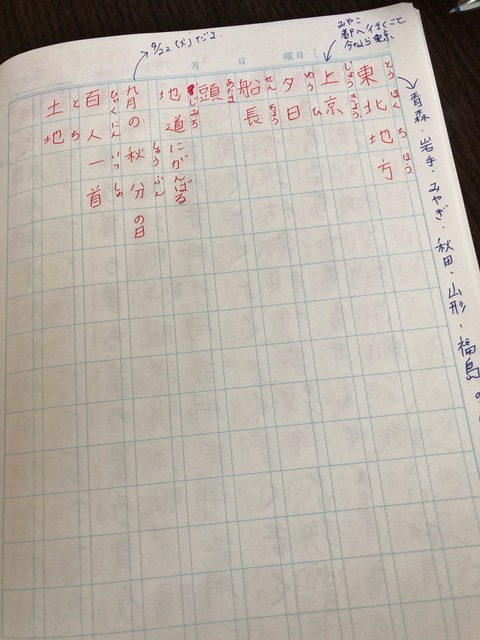 月 日 曜日(
青森・岩手・みやぎ・秋田・山形・福島の
とうほくちほう
東北地方
みやこ
都へ行くこと
今なら東京、
じょうきょう
上京
ゆうひ
夕日
せんちょう
船長
あたま
頭
じみち
地道にがんばる
しゅうぶん
九月の秋分の日
9/22(火)だよ。
ひゃくにんいっしゅ
百人一首
とち
土地